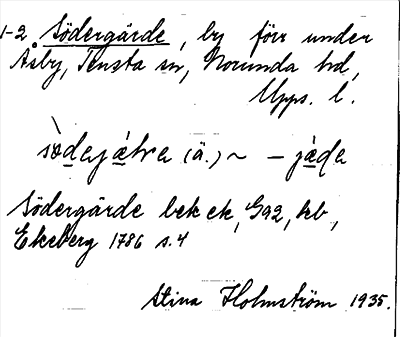 1-2 Södergärde, by förr under
Åsby, Tensta sn, Norunda hd,
Upps. l.
södajä̀lra (ä.) ~ – jäda
Södergärde bek ek, G92, kb,
Ekeberg 1786 s. 4
Stina Holmström 1935.